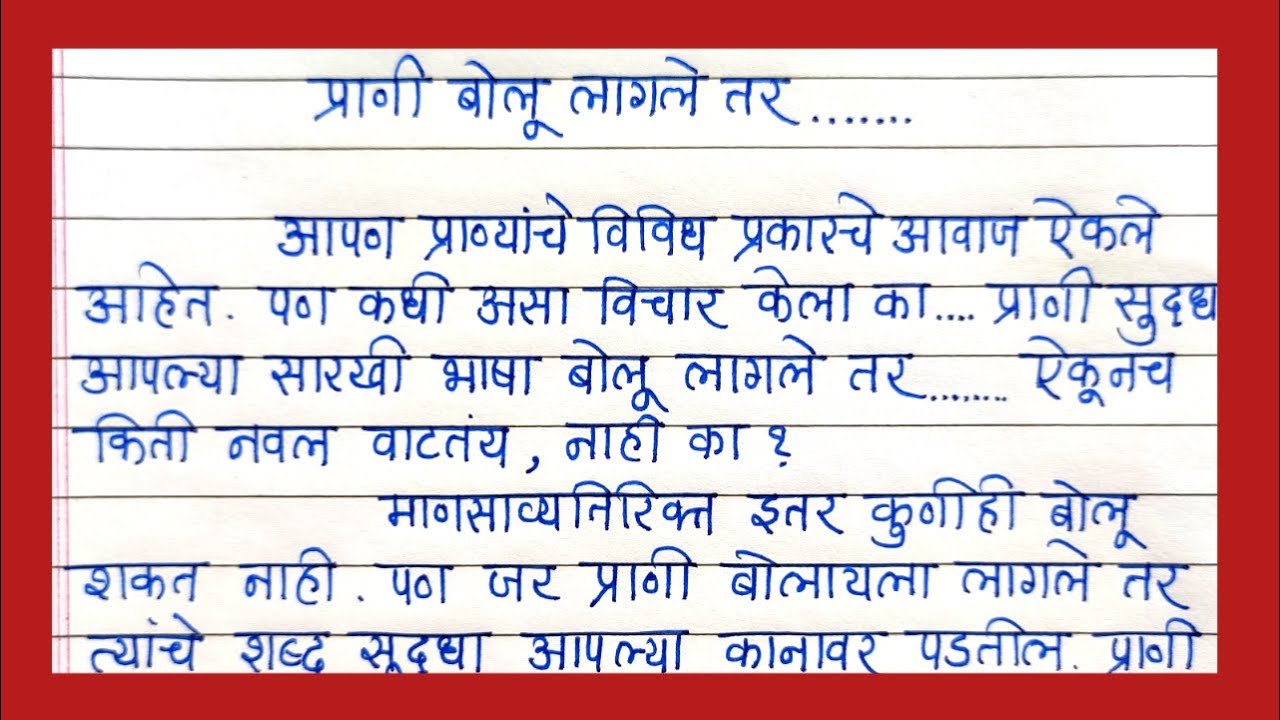 प्राणी बोलू लागले तर.......
आपण प्राण्यांचे विविध प्रकारचे आवाज ऐकले
आहेत. पण कधी असा विचार केला का.... प्राणी सुद्धा
आपल्या सारखी भाषा बोलू लागले तर........ ऐकूनच
किती नवल वाटतंय, नाही का?
माणसाव्यतिरिक्त इतर कुणीही बोलू
शकत नाही. पण जर प्राणी बोलायला लागले तर
त्यांचे शब्द सुद्धा आपल्या कानावर पडतील. प्राणी